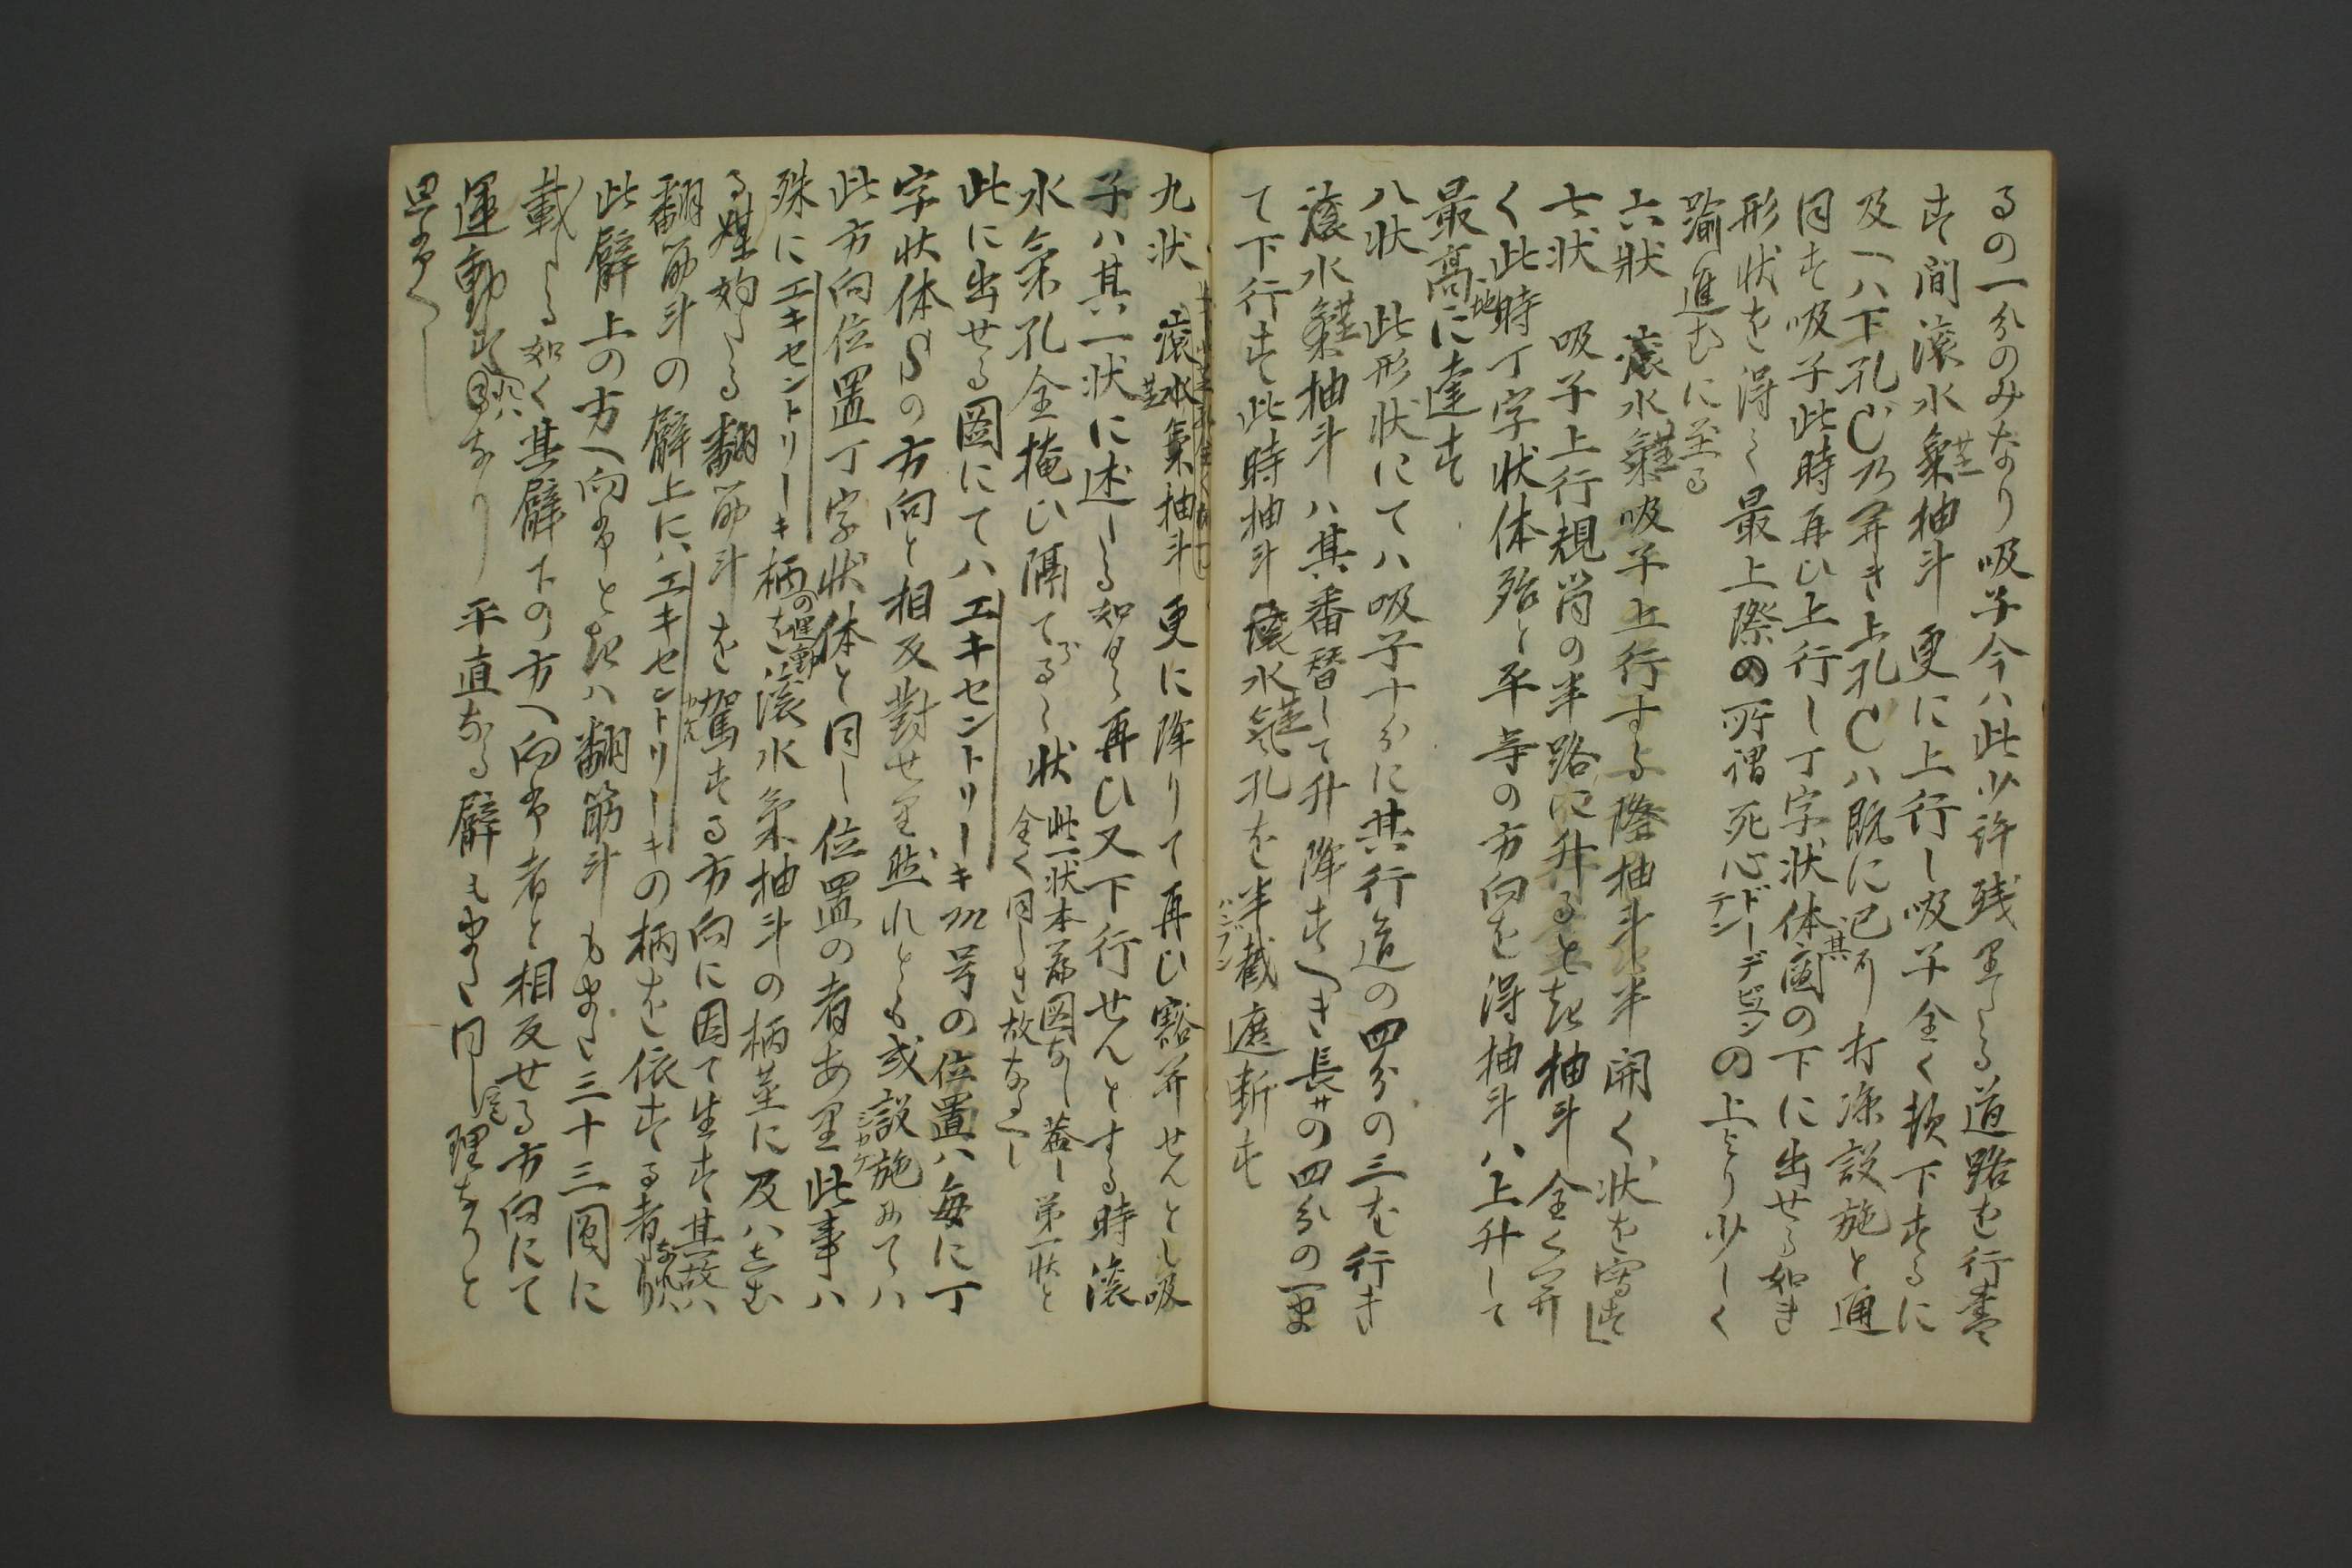 るの一分のみなり吸子今ハ此少許残里たる道路を行盡
す間滚水気抽斗更に上行し吸子全く越下するに
及へハ下孔C'乃开き上孔Cハ既に已打添設施と通
同す吸子此時再ひ上行し丁字状体其図の下に出せる如き
形状を得く最上際の所謂死心ドーデピュンテンの上より少しく
踰進むに至る
六状 滚水気吸子上行する際抽斗半開く状を寫す
七状 吸子上行規崗の半路に升るとき抽斗全く开
く此時丁字状体殆と平等の方向を得抽斗ハ上升して
最高地に達す
八状 此形状にてハ吸子十分に其行道の四分の三を行き
滚水気抽斗ハ其番替して升降すへき長サの四分の一
て下行す此時抽斗滚水気孔を半截ハンブン遮断す
九状 滚水気抽斗更に降りて再ひ豁开せんとし吸
子ハ其一状に述たる如く再ひ又下行せんとする時滚
水気孔全掩ひ隔てらるゝ状 此一状本篇図なし蓋し第一状と
全く同しき故なるへし
此に出せる図にてハエキセントリーキm号の位置ハ毎に丁
字状体Sの方向と相反對せり然れとも或設施シカケにてハ
此方向位置丁字状体と同し位置の者あり此事ハ
殊にエキセントリーキ柄の運動を滚水気抽斗の柄茎に及ハしむ
る媒妁たる翻筋斗を駕する方向に因て生す其故ハ
翻筋斗の臂上にハエキセントリーキの柄を依する者なり
此臂上の方へ向ふときハ翻筋斗もまた三十三図に
載たる如く其臂下の方へ向ふ者と相反せる方向にて
運動すれハなり 平直なる臂もまた同し理なりと
思ふへし